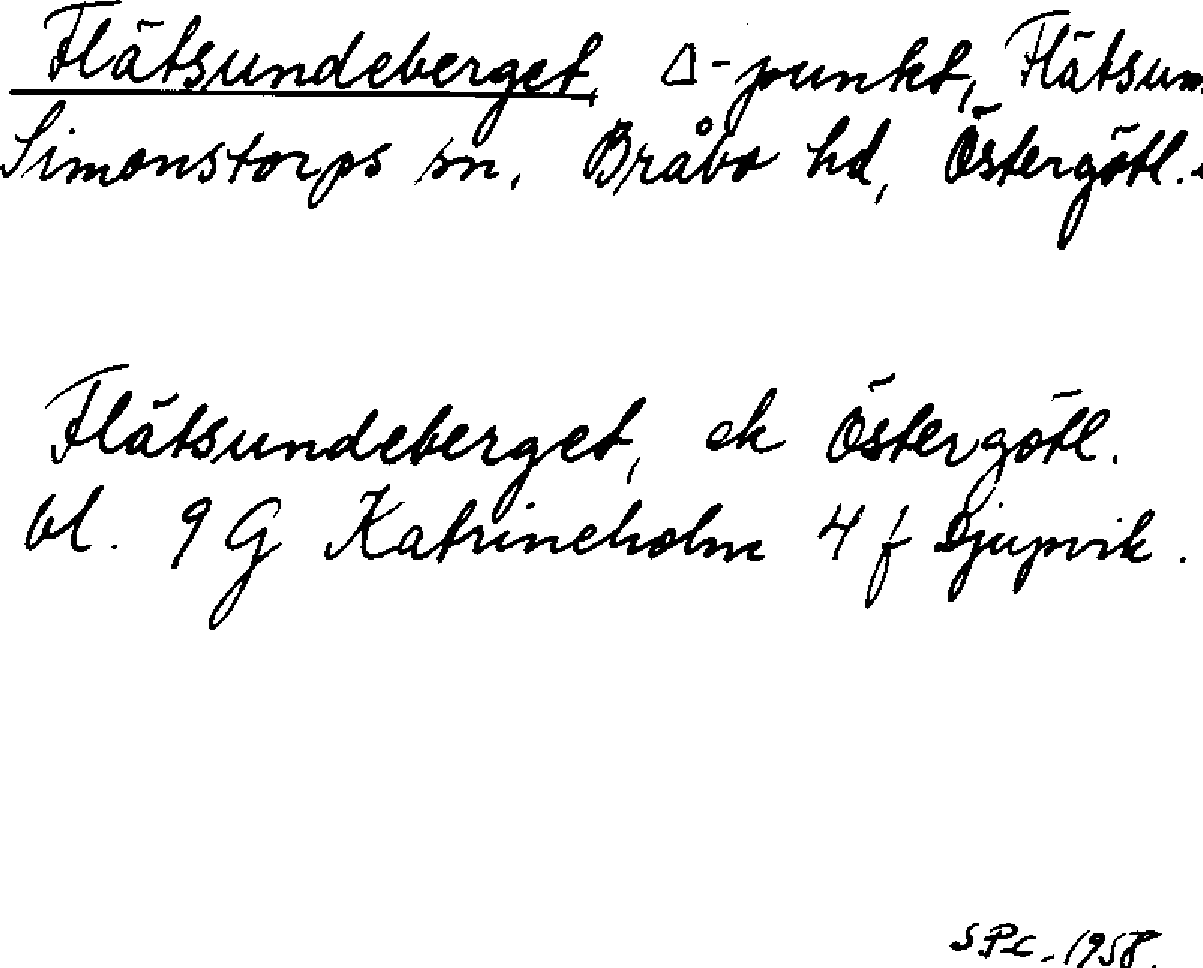 Flätsundeberget, Δ-punkt, Flätsun
Simonstorps sn, Bråbo hd, Östergötl.
Flätsundeberget, ek Östergötl.
bl. 9 G Katrineholm 4 f Djupvik.
SPC - 1958.